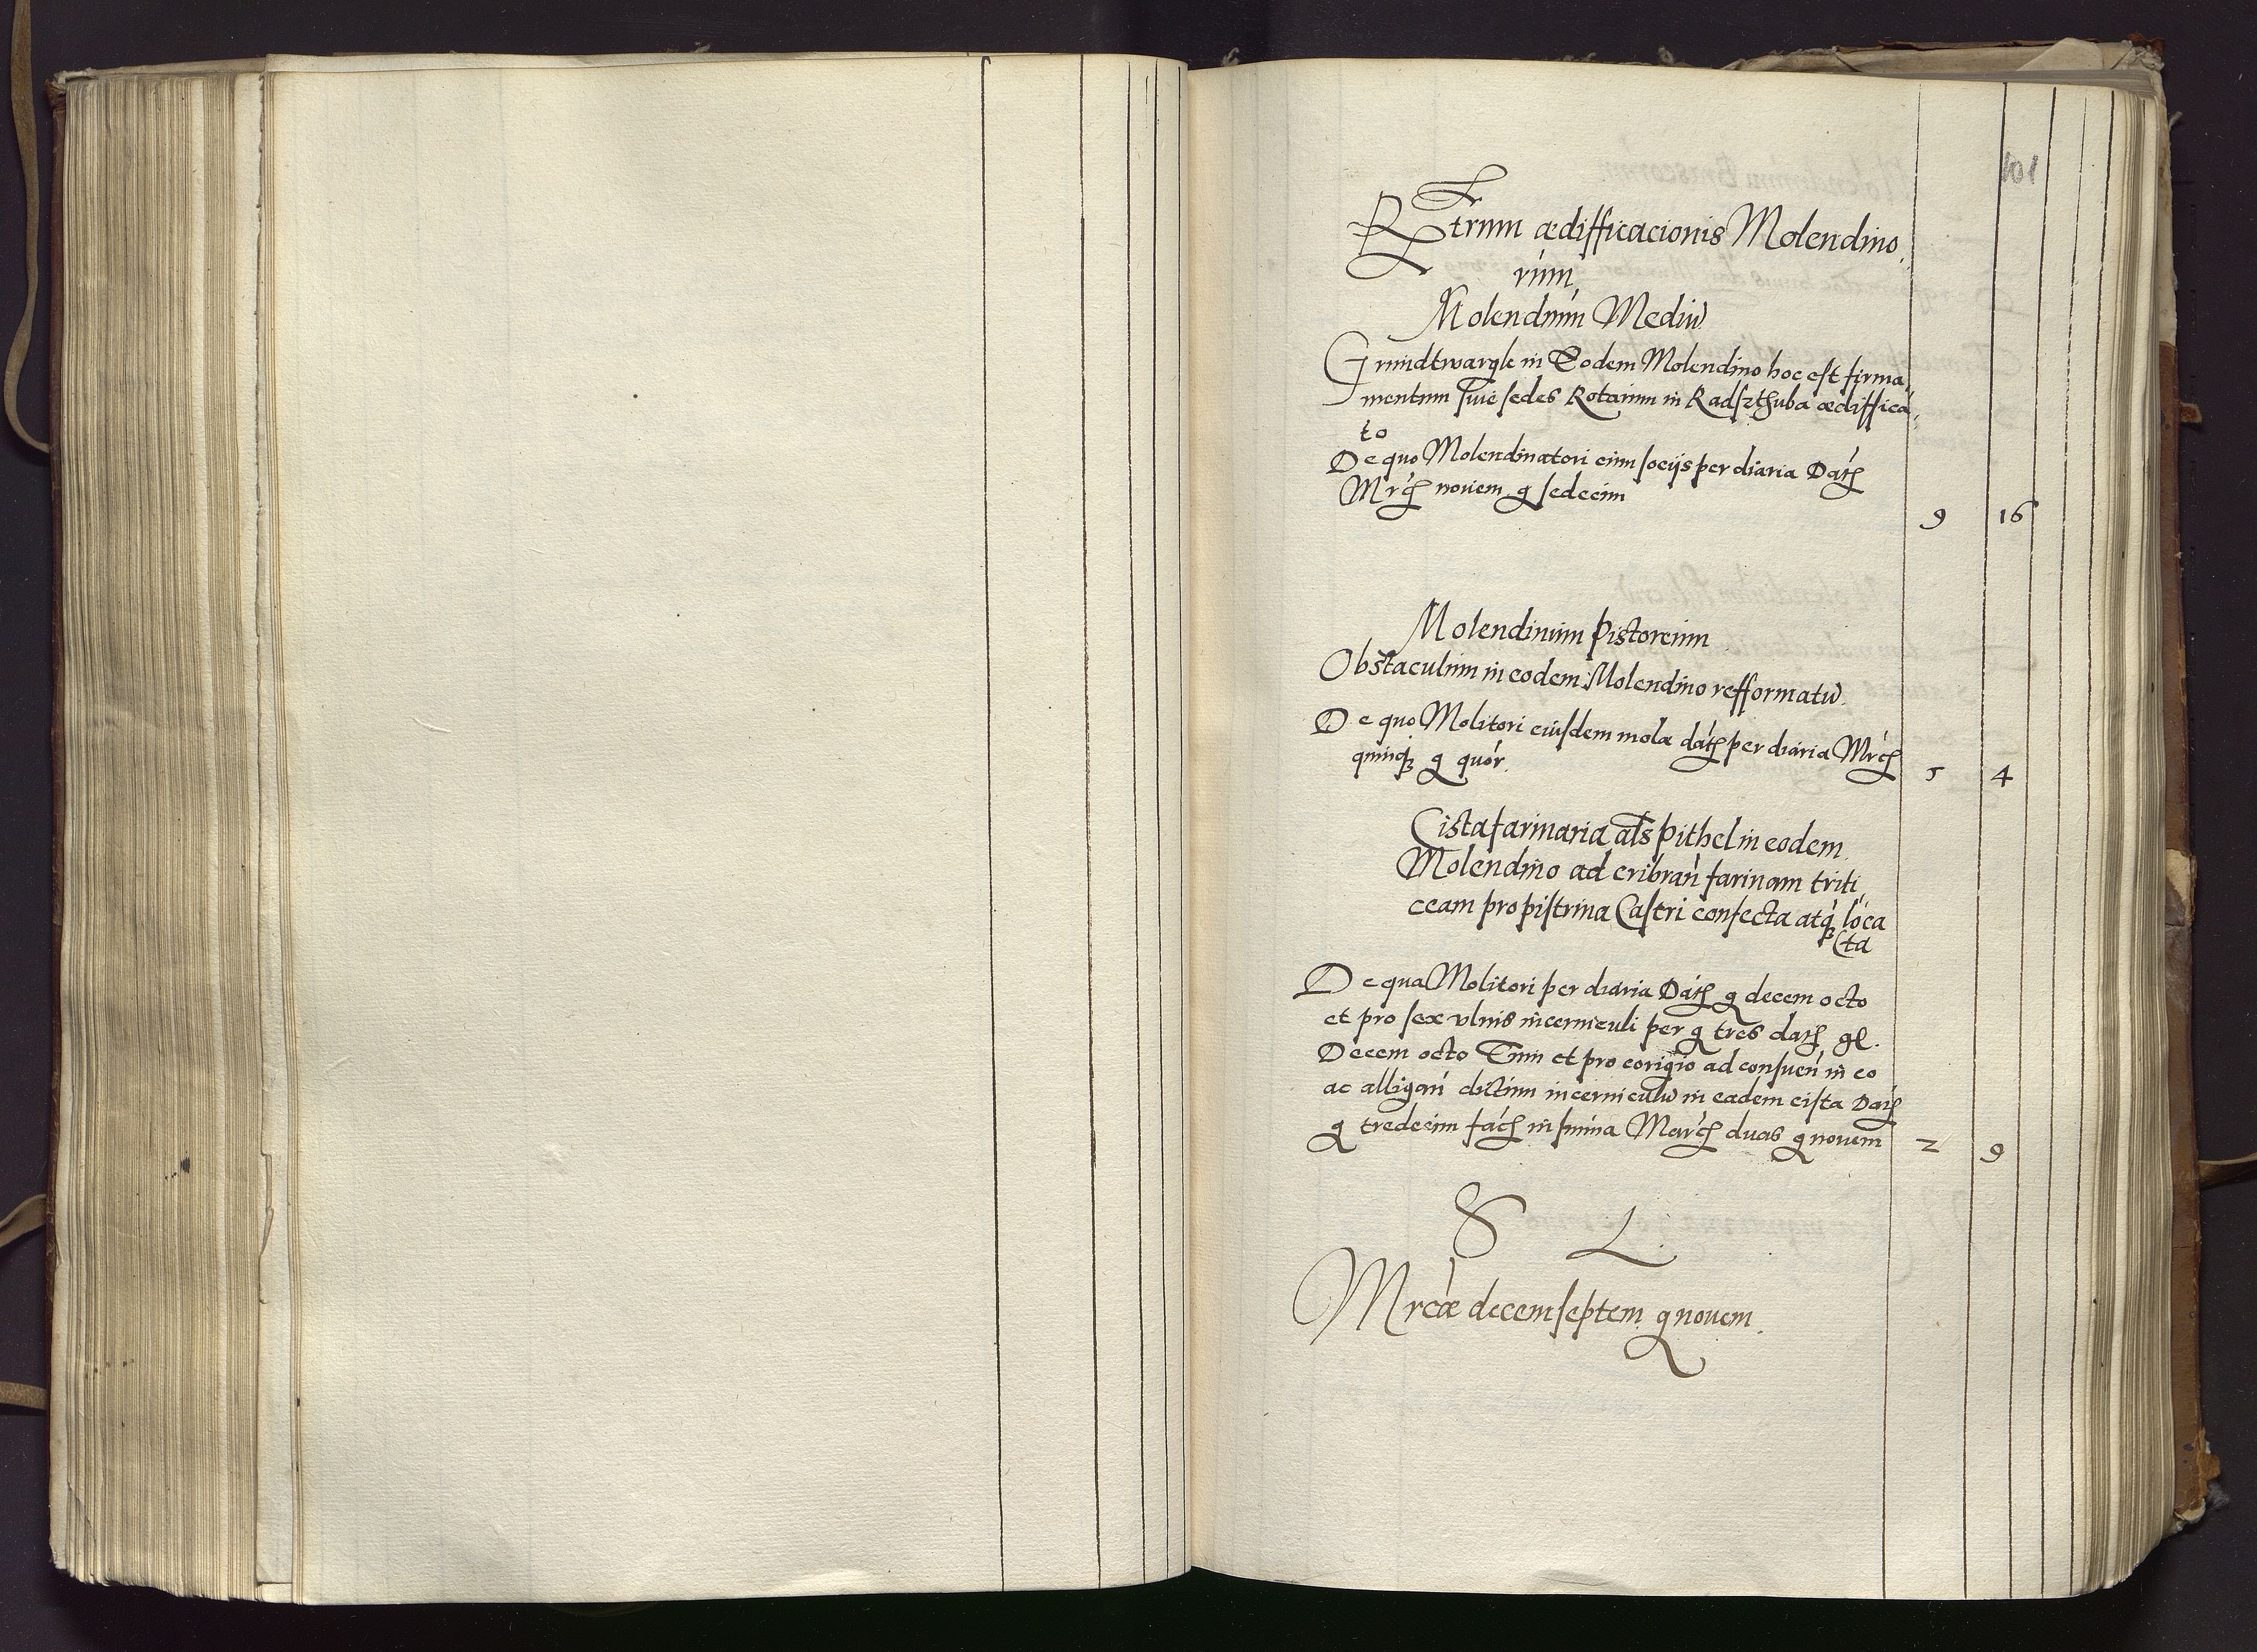 101
Rtrum ædifficacionis Molendino
rum
Molendinum Mediu
Grundtwargle in Eodem Molendino hoc est firma
mentum siue sedes Rotarum in Radszthuba ædiffica
to
De quo Molendinatori cum socijs per diaria
novem g sedecim
9 16
Molendinum Pistoreum
Obstaculum in eodem Molendino refformatu
De quo Molitori eiusdem molæ per diaria
quinq g quor
5 4
Cista farinaria als pithel in eodem
Molendino ad cribran farinam triti
ceam pro pistrina Castri confecta atq loca
ta
De qua Molitori per diaria g decem octo
et pro sex vlnis incerniculi per g tres
Decem octo Tum et pro corigio ad consuen in eo
ac alligan dictum incerniculu in eadem cista
g tredecim in summa duas g novem
2 9
S L
Mrcæ decem septem g novem